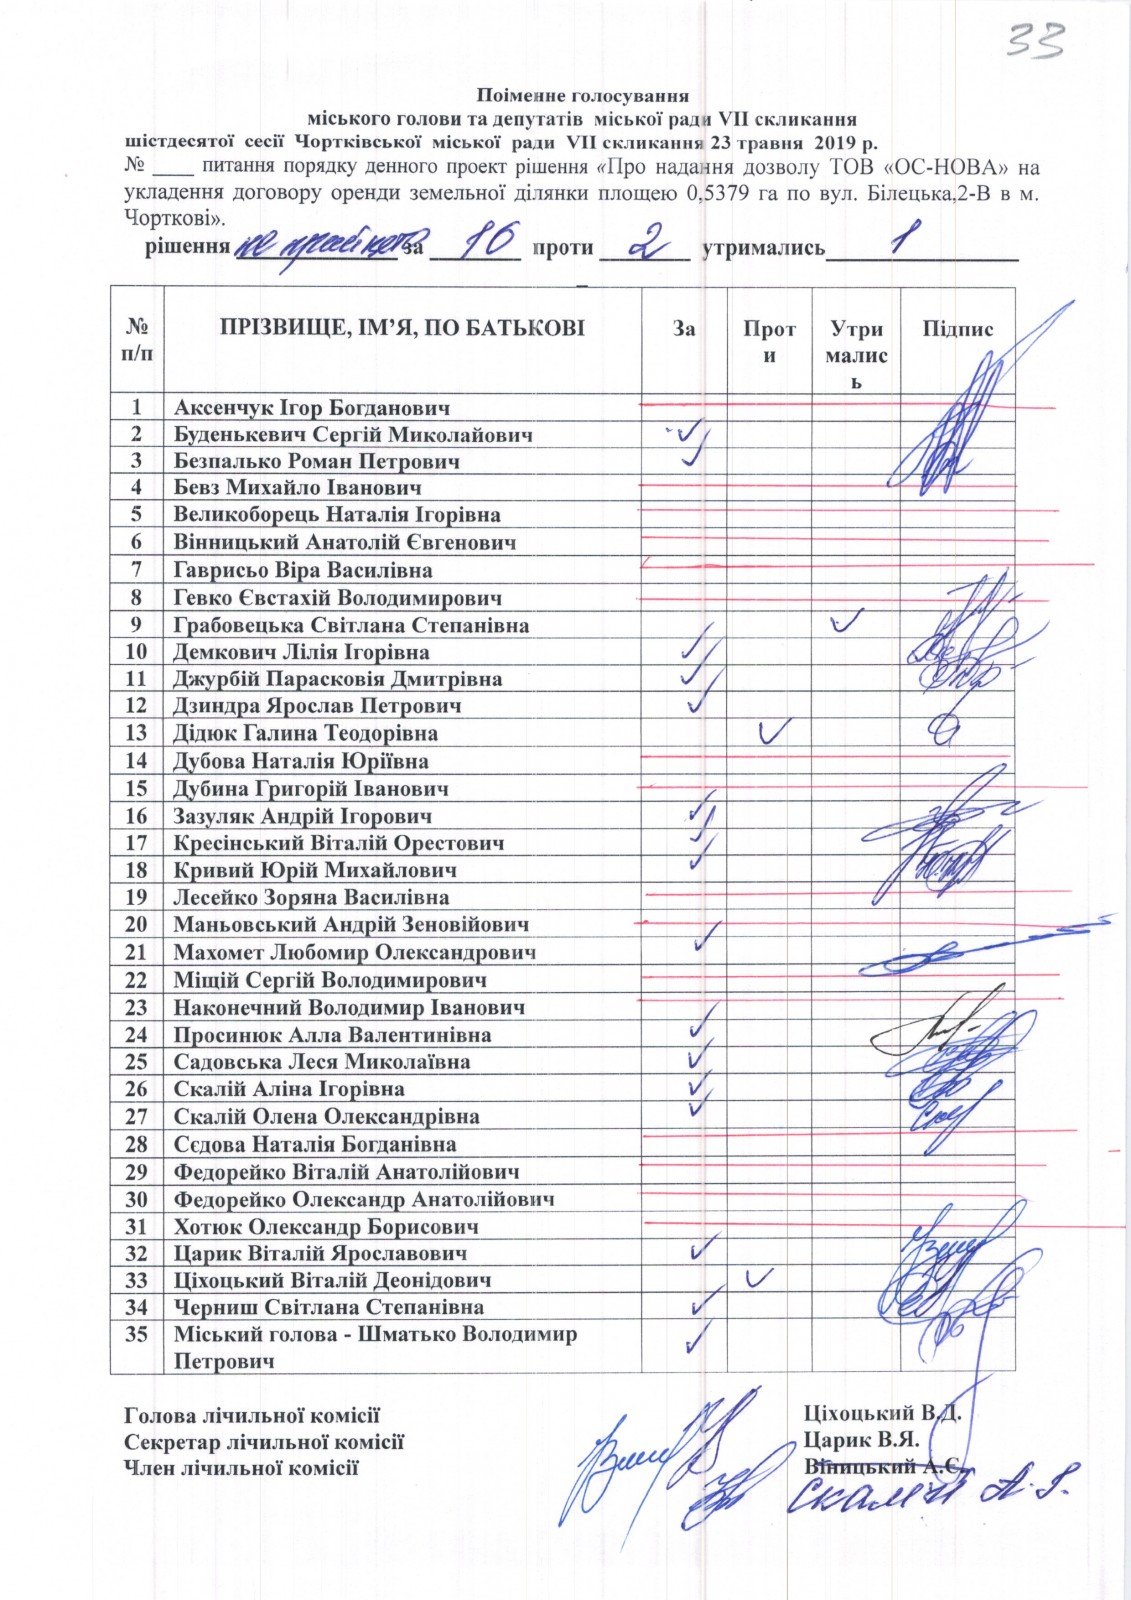 33
Поіменне голосування
міського голови та депутатів міської ради VII скликання
шістдесятої сесії Чортківської міської ради VII скликання 23 травня 2019 р.
№ ____ питання порядку денного проект рішення «Про надання дозволу ТОВ «ОС-НОВА» на
укладення договору оренди земельної ділянки площею 0,5379 га по вул. Білецька,2-В в м.
Чорткові».
рішення не прийнято за 16 проти 2 утримались 1
№ п/п ПРІЗВИЩЕ, ІМ’Я, ПО БАТЬКОВІ За Проти Утримались Підпис
1 Аксенчук Ігор Богданович
2 Буденькевич Сергій Миколайович
3 Безпалько Роман Петрович
4 Бевз Михайло Іванович
5 Великоборець Наталія Ігорівна
6 Вінницький Анатолій Євгенович
7 Гаврисьо Віра Василівна
8 Гевко Євстахій Володимирович
9 Грабовецька Світлана Степанівна
10 Демкович Лілія Ігорівна
11 Джурбій Парасковія Дмитрівна
12 Дзиндра Ярослав Петрович
13 Дідюк Галина Теодорівна
14 Дубова Наталія Юріївна
15 Дубина Григорій Іванович
16 Зазуляк Андрій Ігорович
17 Кресінський Віталій Орестович
18 Кривий Юрій Михайлович
19 Лесейко Зоряна Василівна
20 Маньовський Андрій Зеновійович
21 Махомет Любомир Олександрович
22 Міщій Сергій Володимирович
23 Наконечний Володимир Іванович
24 Просинюк Алла Валентинівна
25 Садовська Леся Миколаївна
26 Скалій Аліна Ігорівна
27 Скалій Олена Олександрівна
28 Сєдова Наталія Богданівна
29 Федорейко Віталій Анатолійович
30 Федорейко Олександр Анатолійович
31 Хотюк Олександр Борисович
32 Царик Віталій Ярославович
33 Ціхоцький Віталій Деонідович
34 Черниш Світлана Степанівна
35 Міський голова - Шматько Володимир
Петрович
Голова лічильної комісії Ціхоцький В.Д.
Секретар лічильної комісії Царик В.Я.
Член лічильної комісії Віницький А.Є.
Скалій А.І.